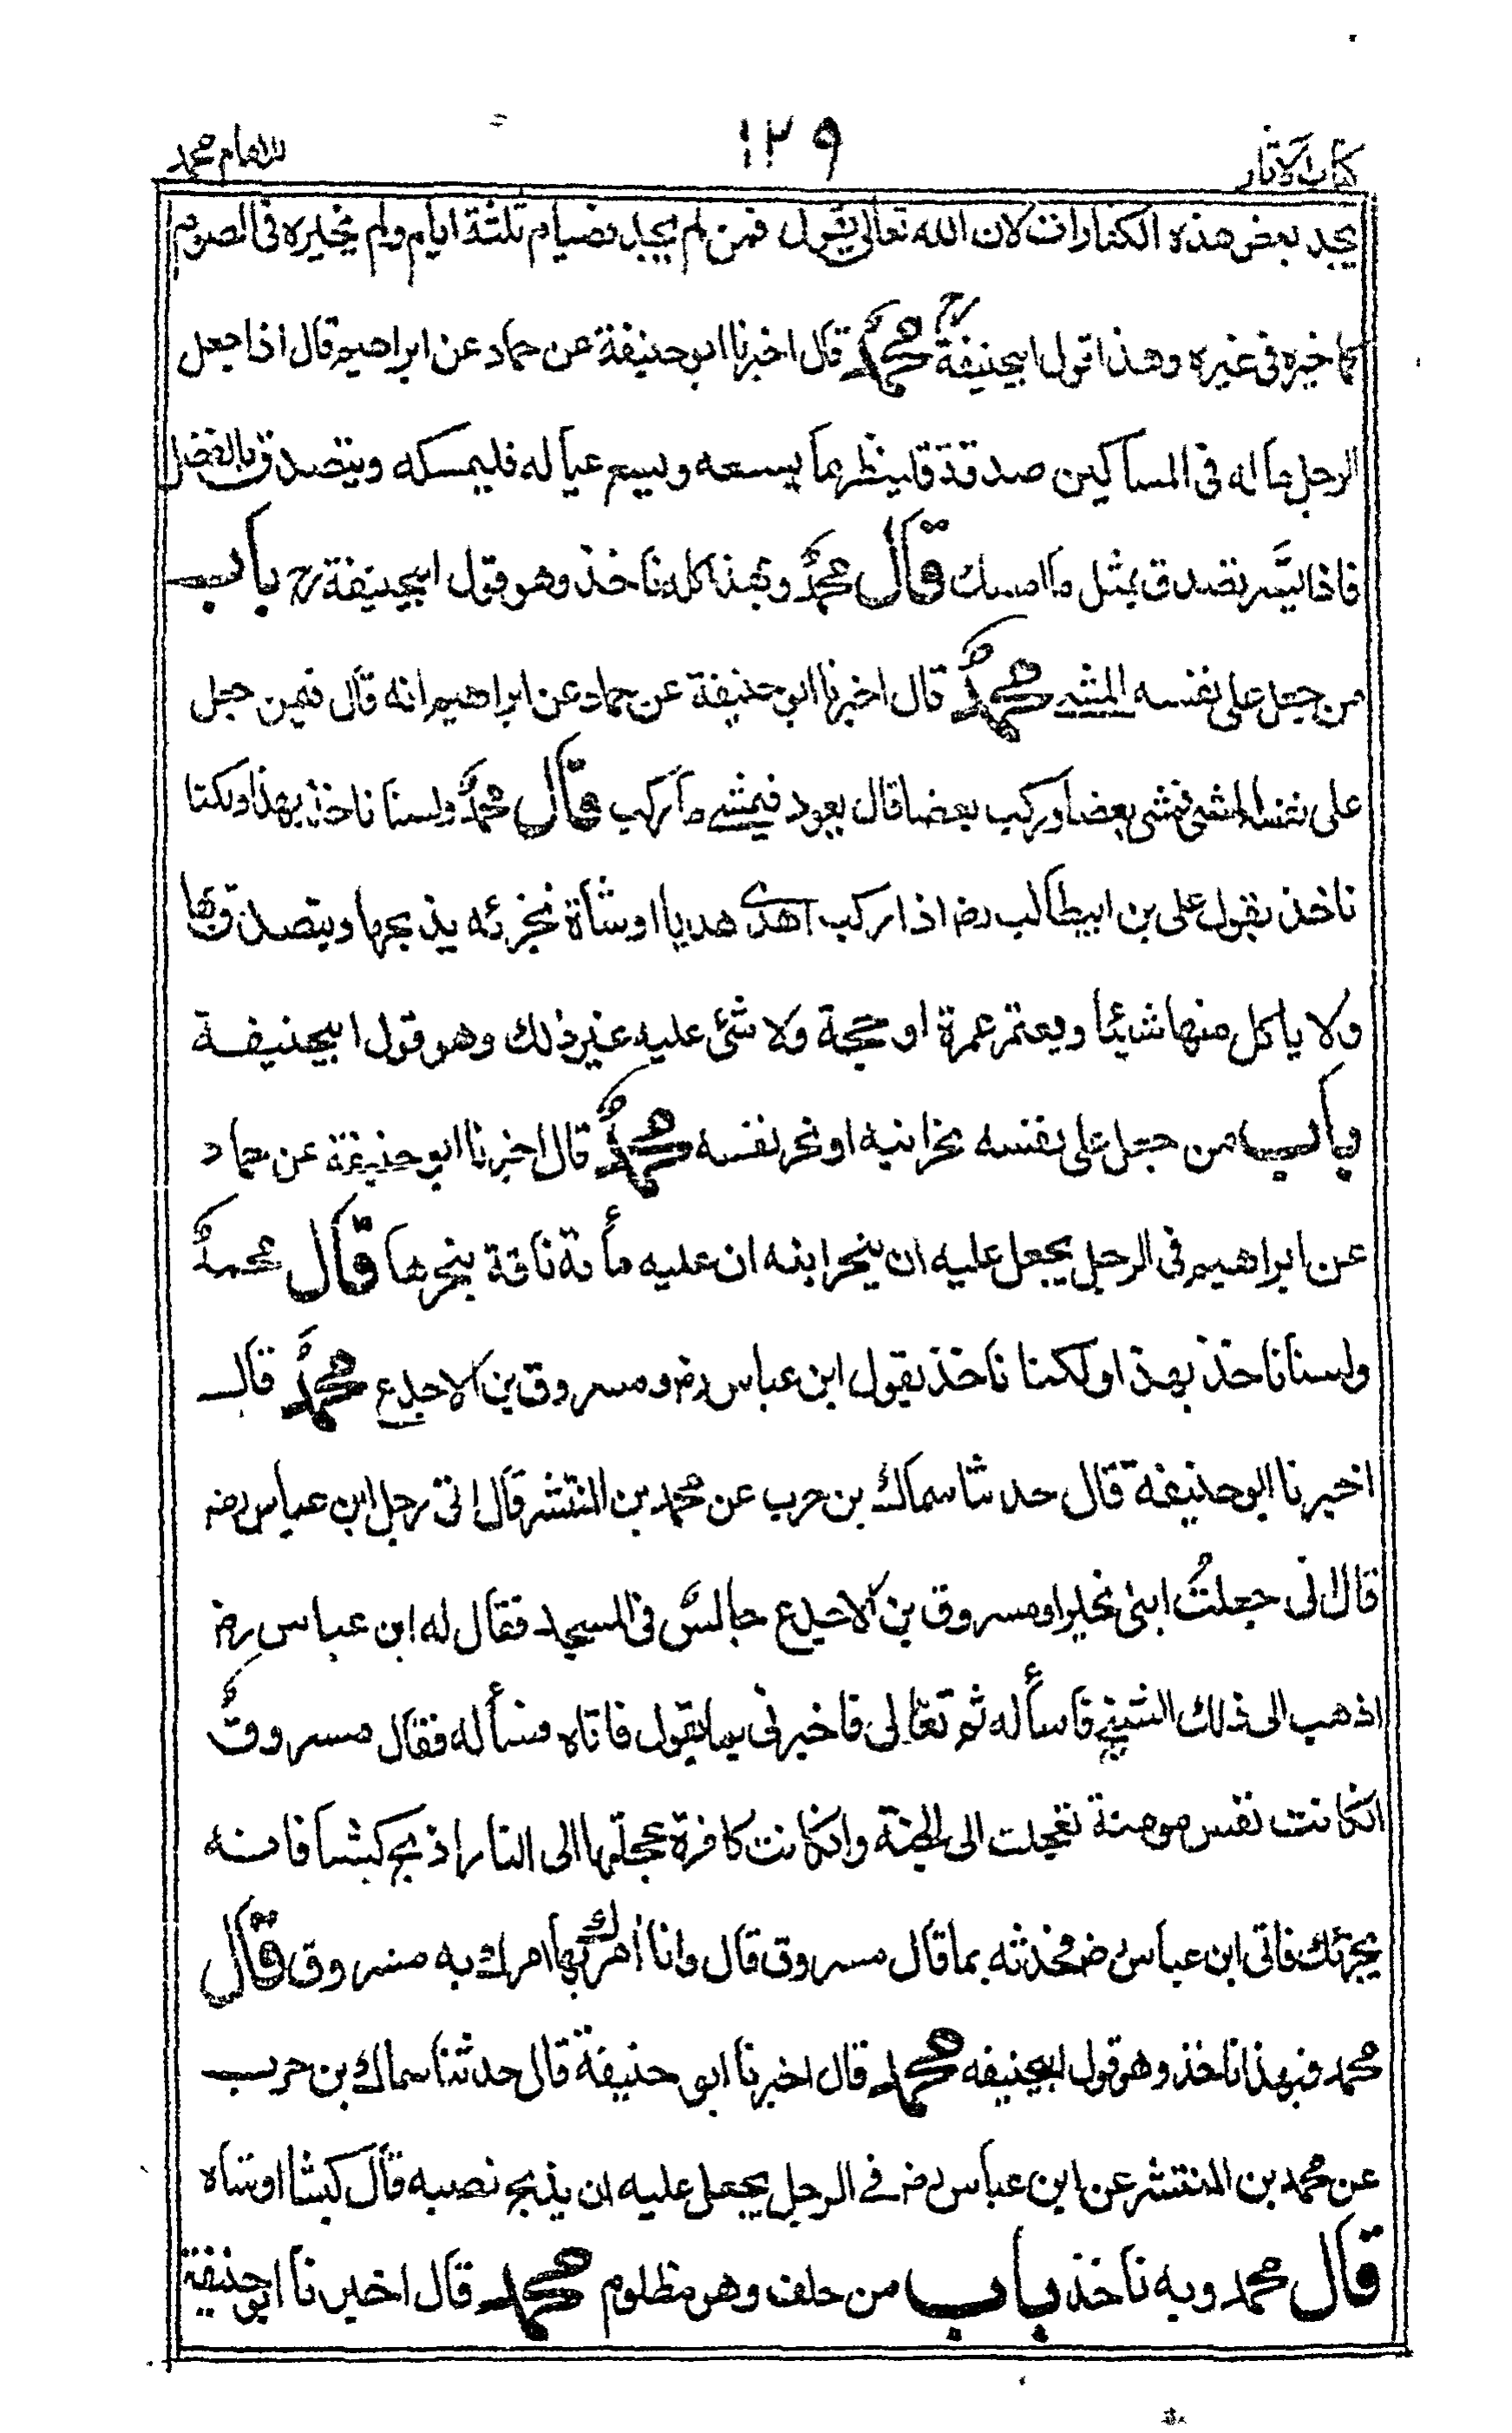 كتاب الاثار ١٢٩ للامام محمد
يجد بعض هذه الكفارات لان الله تعالى يقول فمن لم يجد فصيام ثلثة ايام ولم يخيره فى الصوم
كما خيره فى غيره وهذا قول ابيحنيفة رح محمد قال اخبرنا ابو حنيفة عن حماد عن ابراهيم قال اذا جعل
الرجل ماله فى المساكين صدقة فلينظر ما يسعه ويسع عياله فليمسكه ويتصدق بالفضل
فاذا ايسر تصدق بمثل ما امسك قال محمد وبهذا كله ناخذ وهو قول ابيحنيفة رح باب
من جعل على نفسه المشى محمد قال اخبرنا ابو حنيفة عن حماد عن ابراهيم انه قال فيمن جعل
على نفسه المشى فمشى بعضا وركب بعضا قال يعود فيمشى ما ركب قال محمد ولسنا ناخذ بهذا ولكنا
ناخذ بقول على بن ابيطالب رض اذا ركب اهدى هديا او شاة تجزئه يذبحها ويتصدق بها
ولا ياكل منها شيئا ويعتمر عمرة او حجة ولا شئ عليه غير ذلك وهو قول ابيحنيفة
باب من جعل على نفسه نحر ابنه او نحر نفسه محمد قال اخبرنا ابو حنيفة عن حماد
عن ابراهيم فى الرجل يجعل عليه ان ينحر ابنه ان عليه مأة ناقة ينحرها قال محمد
ولسنا ناخذ بهذا ولكنا ناخذ بقول ابن عباس رض ومسروق بن الاجدع محمد قال
اخبرنا ابو حنيفة قال حدثنا سماك بن حرب عن محمد بن المنتشر قال اتى رجل ابن عباس رض
قال انى جعلت ابنى نحيرا ومسروق بن الاجدع جالس فى المسجد فقال له ابن عباس رض
اذهب الى ذلك الشيخ فاسأله ثم تعالى فاخبرنى بما يقول فاتاه فسأله فقال مسروق
انكانت نفس مومنة تعجلت الى الجنة وانكانت كافرة عجلتها الى النار اذبح كبشا فانه
يجزئك فاتى ابن عباس رض فحدثه بما قال مسروق قال وانا امرك بما امرك به مسروق قال
محمد فبهذا ناخذ وهو قول ابيحنيفه محمد قال اخبرنا ابو حنيفة قال حدثنا سماك بن حرب
عن محمد بن المنتشر عن ابن عباس رض فى الرجل يجعل عليه ان يذبح نصبه قال كبشا او شاه
قال محمد وبه ناخذ باب من حلف وهو مظلوم محمد قال اخبرنا ابو حنيفة